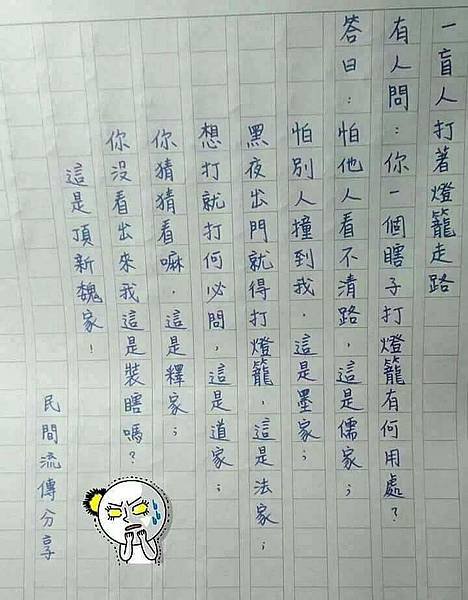 一盲人打著燈籠走路
有人問：你一個瞎子打燈籠有何用處？
答曰：怕他人看不清路，這是儒家；
怕別人撞到我，這是墨家；
黑夜出門就得打燈籠，這是法家；
想打就打何必問，這是道家；
你猜猜看嘛，這是釋家；
你沒看出來我這是裝瞎嗎？
這是頂新魏家！
民間流傳分享